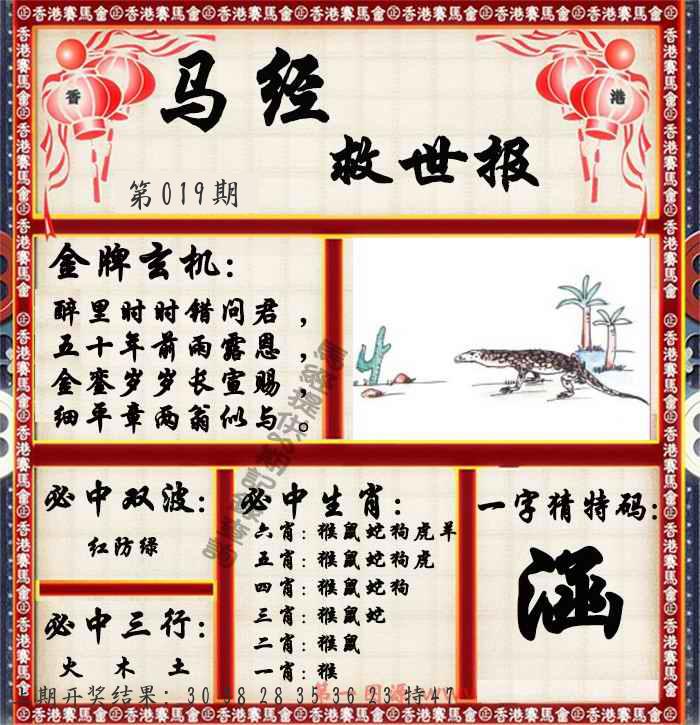 香港賽馬會
香 港
马经
救世报
第019期
金牌玄机：
醉里时时错问君，
五十年前雨露恩，
金銮岁岁长宣赐，
细平章两翁似与。
必中双波：
红防绿
必中三行：
火 木 土
必中生肖：
六肖：猴鼠蛇狗虎羊
五肖：猴鼠蛇狗虎
四肖：猴鼠蛇狗
三肖：猴鼠蛇
二肖：猴鼠
一肖：猴
一字猜特码：
涵
期开奖结果：30 38 28 35 36 23 特47